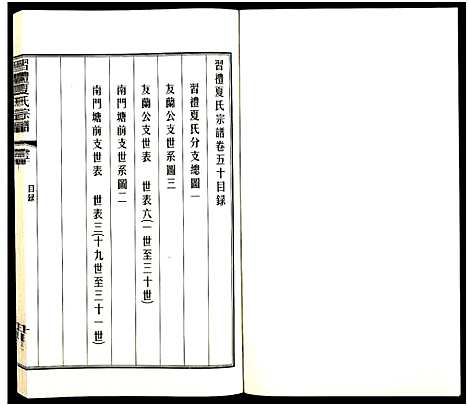 習禮夏氏宗譜卷五十目録
習禮夏氏分支總圖一
友蘭公支世系圖三
友蘭公支世表　世表六(一世至三十世)
南門塘前支世系圖二
南門塘前支世表　世表三(十九世至三十一世)
習禮夏氏宗譜
目録